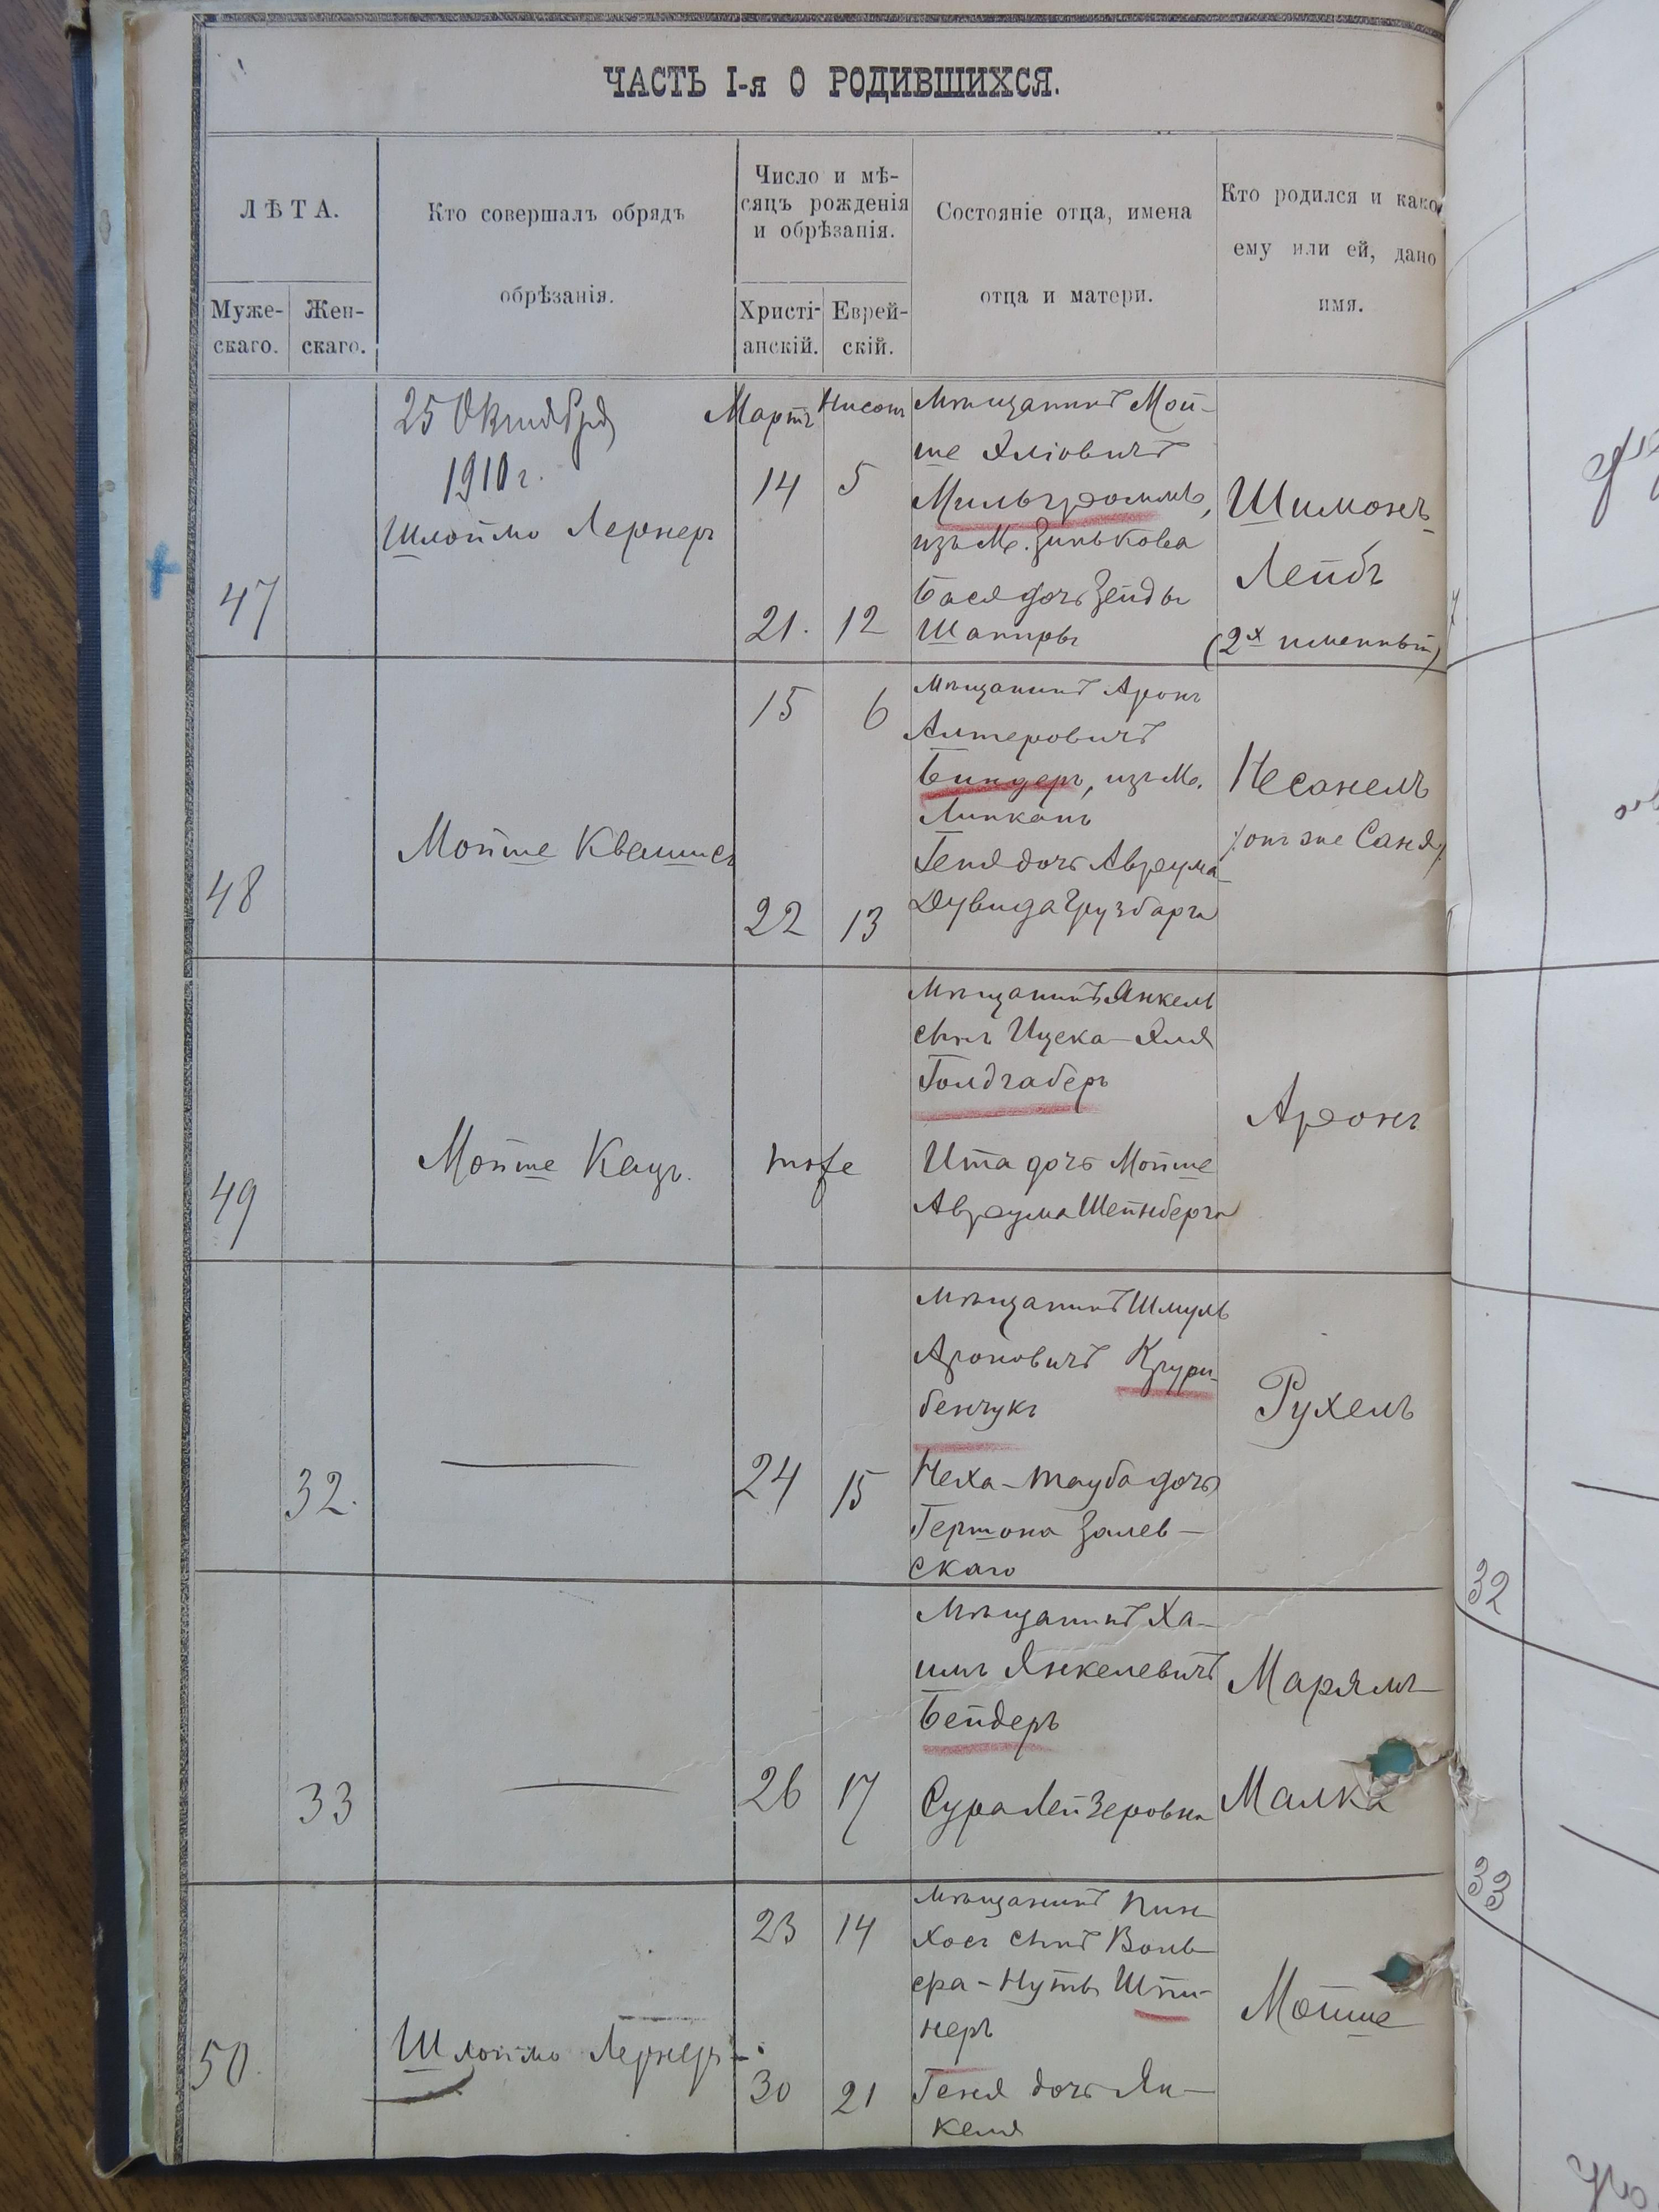 ЧАСТЬ I-я О РОДИВШИХСЯ.
ЛѢТА.
Муже-
скаго.
Жен-
скаго.
Кто совершалъ обрядъ
обрѣзанія.
Число и мѣ-
сяцъ рожденія
и обрѣзанія.
Христі-
анскій.
Еврей-
скій.
Состояніе отца, имена
отца и матери.
Кто родился и како
ему или ей, дано
имя.
47
25 Октября
1910 г.
Шлоймо Лернеръ
Мартъ Нисонъ
14 5
21. 12
Мѣщанинъ Мой-
ше Эліовичъ
Мильгромъ,
изъ М. Зинькова
Бася дочь Зейды
Шапиры
Шимонъ
Лейбъ
(2х именный)
48
Мойше Квашисъ
15 6
22 13
Мѣщанинъ Аронъ
Алтеровичъ
Биндеръ, изъ М.
Липканъ
Геня дочь Авраума
Дувида Грузбарга
Несанелъ
/онъ же Саня/
49
Мойше Кацъ.
тоже
Мѣщанинъ Янкель
сынъ Ицека-Эля
Голдгаберъ
Ита дочь Мойше
Авраума Шейнберга
Аронъ
32.
24 15
Мѣщанинъ Шмуль
Ароновичъ Кури-
бенчукъ
Неха-Тауба дочь
Гершона Залев-
скаго
Рухель
33
26 17
Мѣщанинъ Ха-
имъ Янкелевичъ
Бейдеръ
Сура Лейзеровна
Марямъ
Малка
50
Шлоймо Лернеръ
23 14
30 21
Мѣщанинъ Пин-
хосъ сынъ Воль-
фа-Нуты Шпи-
неръ
Геня дочь Ян-
келя
Мойше
32
33